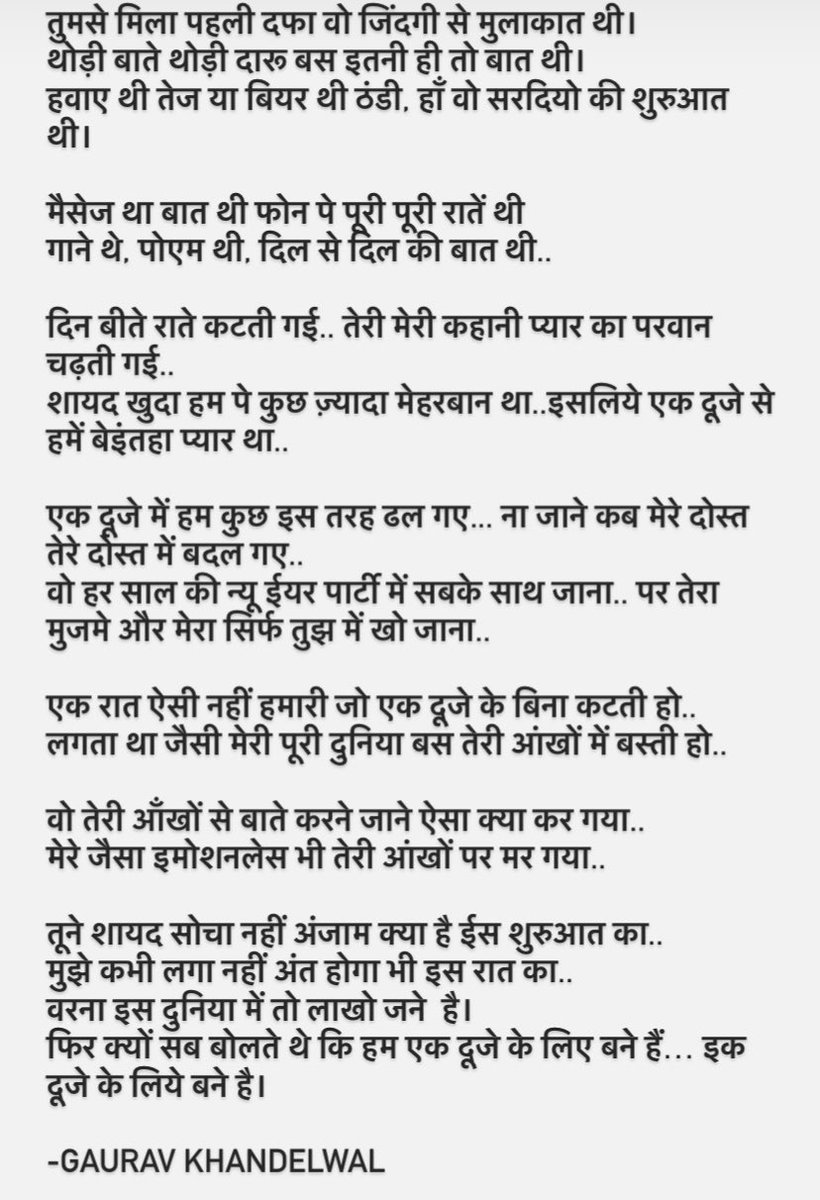 तुमसे मिला पहली दफा वो जिंदगी से मुलाकात थी।
थोड़ी बाते थोड़ी दारू बस इतनी ही तो बात थी।
हवाए थी तेज या बियर थी ठंडी, हाँ वो सरदियो की शुरुआत
थी।
मैसेज था बात थी फोन पे पूरी पूरी रातें थी
गाने थे, पोएम थी, दिल से दिल की बात थी..
दिन बीते राते कटती गई.. तेरी मेरी कहानी प्यार का परवान
चढ़ती गई..
शायद खुदा हम पे कुछ ज़्यादा मेहरबान था..इसलिये एक दूजे से
हमें बेइंतहा प्यार था..
एक दूजे में हम कुछ इस तरह ढल गए... ना जाने कब मेरे दोस्त
तेरे दोस्त में बदल गए..
वो हर साल की न्यू ईयर पार्टी में सबके साथ जाना.. पर तेरा
मुजमे और मेरा सिर्फ तुझ में खो जाना..
एक रात ऐसी नहीं हमारी जो एक दूजे के बिना कटती हो..
लगता था जैसी मेरी पूरी दुनिया बस तेरी आंखों में बस्ती हो..
वो तेरी आँखों से बाते करने जाने ऐसा क्या कर गया..
मेरे जैसा इमोशनलेस भी तेरी आंखों पर मर गया..
तूने शायद सोचा नहीं अंजाम क्या है ईस शुरुआत का..
मुझे कभी लगा नहीं अंत होगा भी इस रात का..
वरना इस दुनिया में तो लाखो जने है।
फिर क्यों सब बोलते थे कि हम एक दूजे के लिए बने हैं... इक
दूजे के लिये बने है।
-GAURAV KHANDELWAL